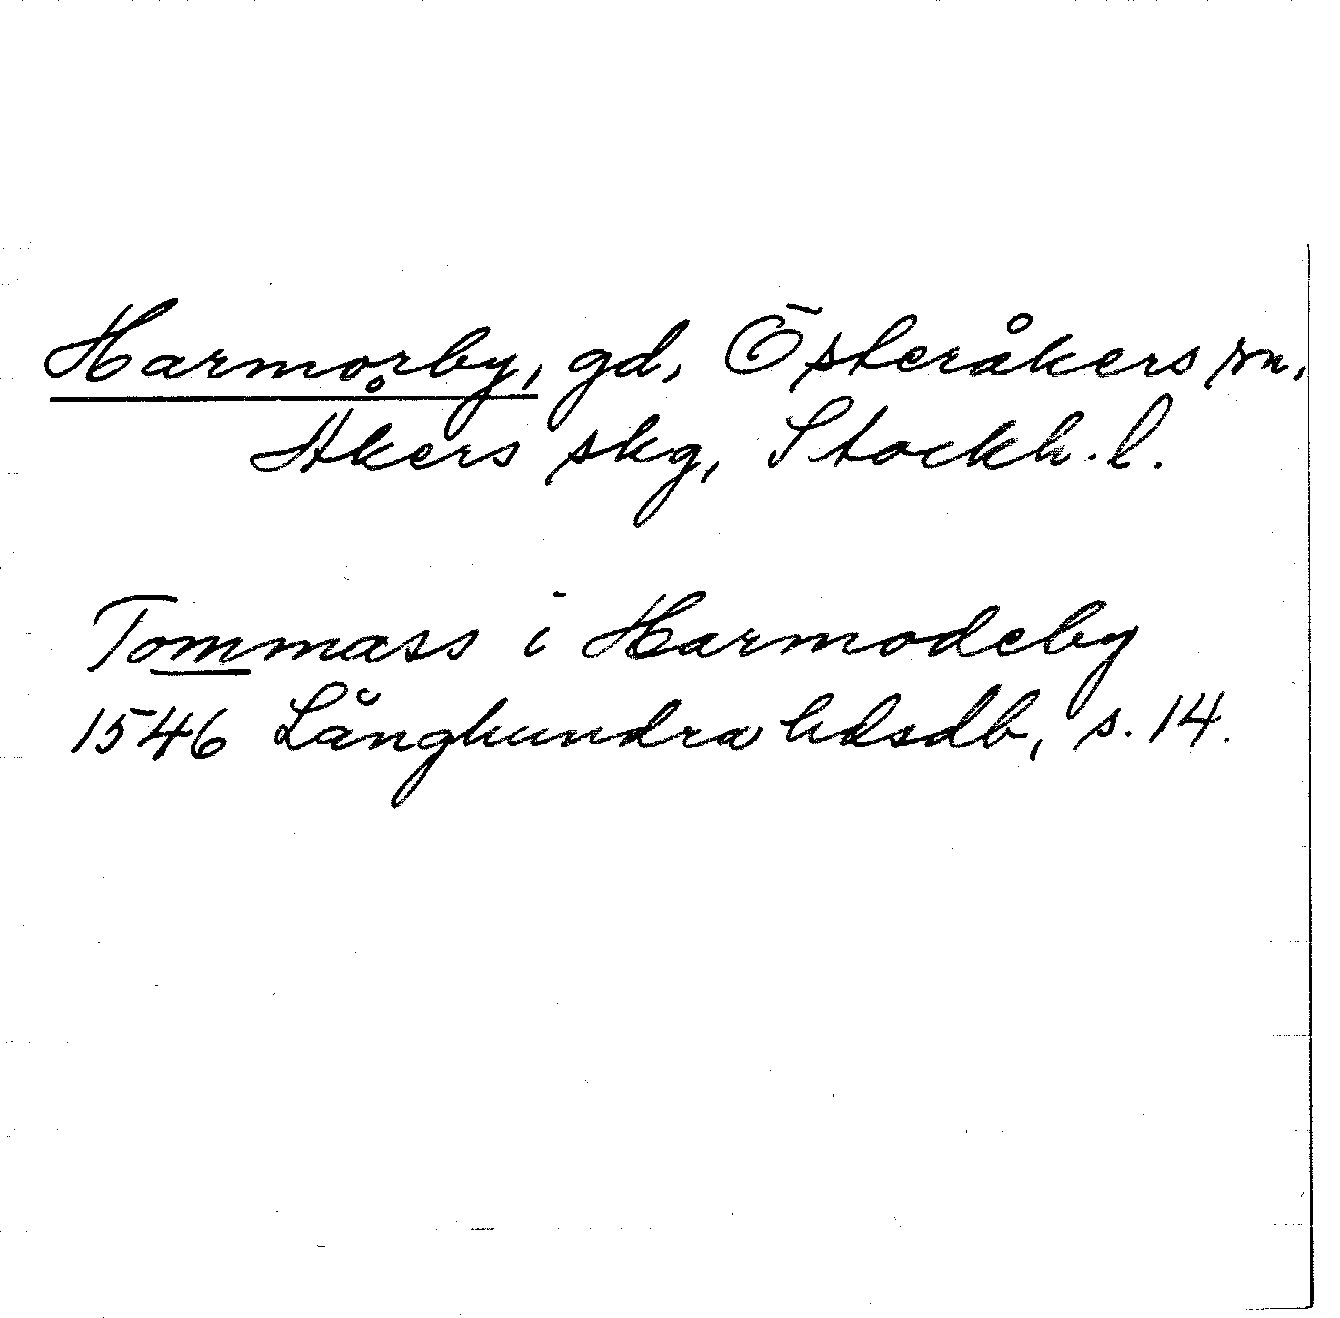 Harmorby, gd, Österåkers sn,
Åkers skg, Stockh. l.
Tommass i Harmodeby
1546 Långhundra hdsdb, s. 14.